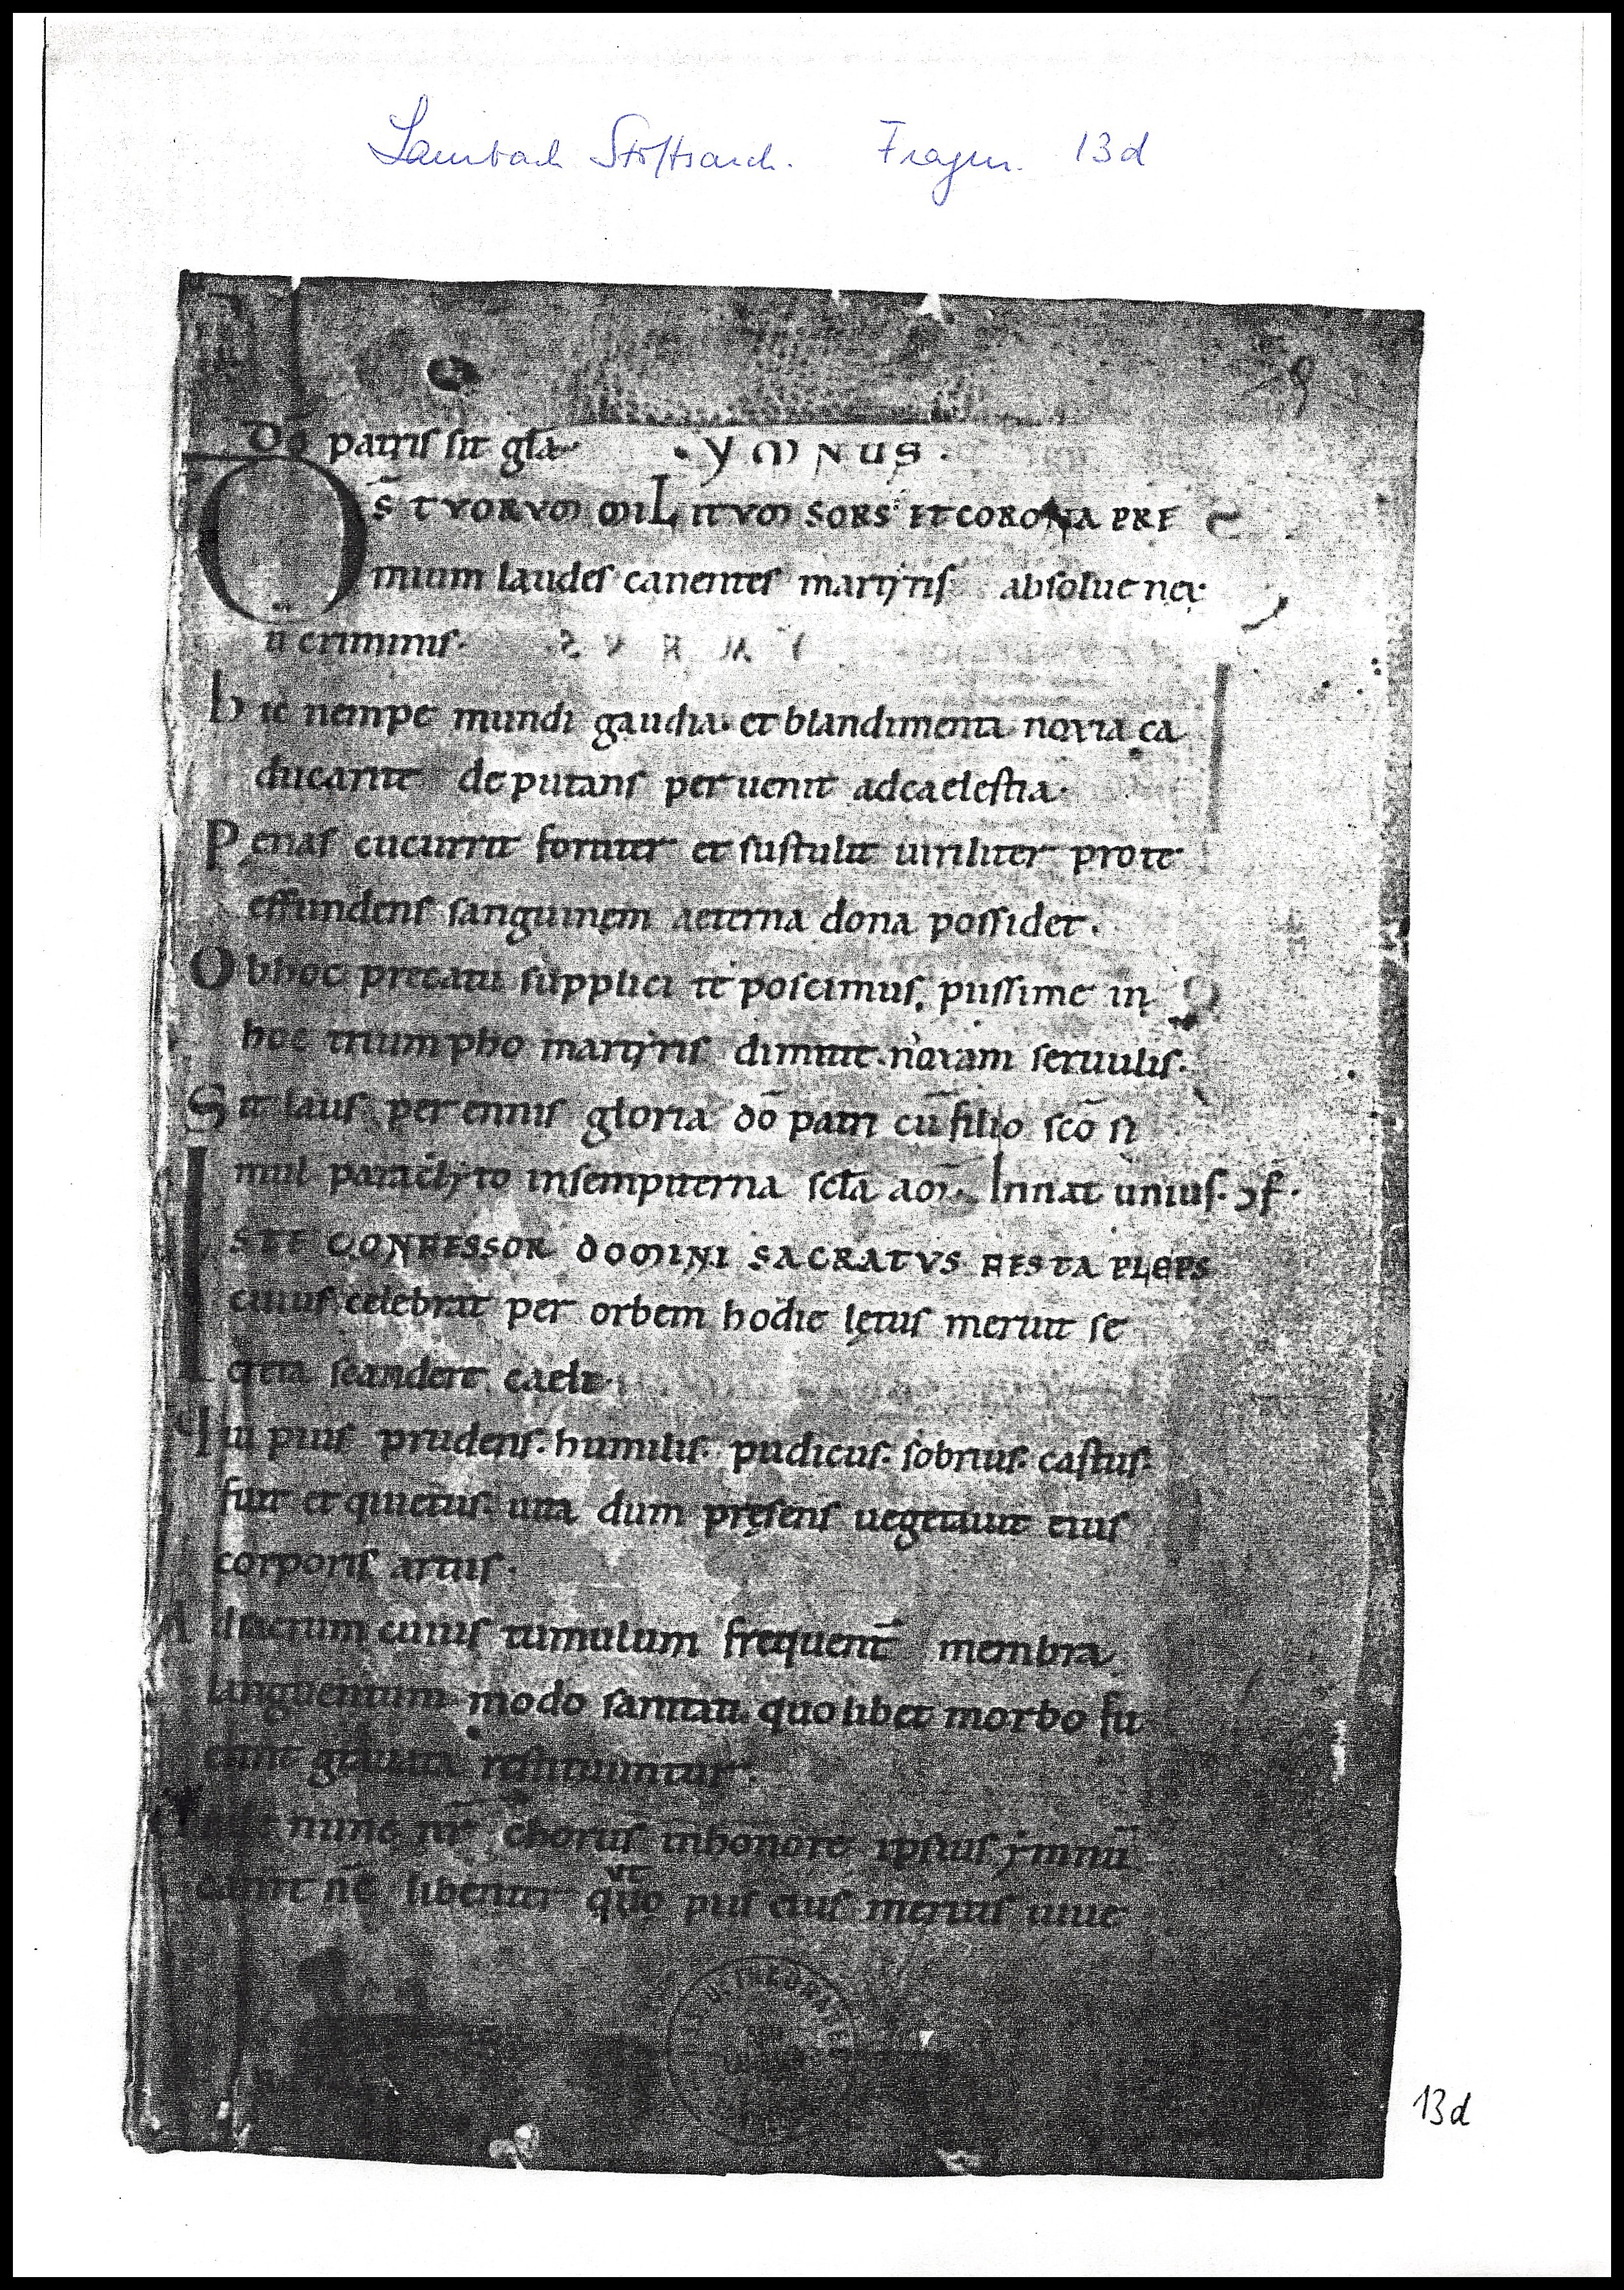 Lambach Stiftsarch. Fragm. 13d
dō patris sit gl̄a · YMNUS ·
DS̄ TVORVM MILITVM SORS ET CORONA PRE
mium laudes canentes martyris absolue nex
u criminis·
hic nempe mundi gaudia· et blandimenta noxia ca
ducarite deputans peruenit adcaelestia·
Penas cucurrit fortiter et sustulit uiriliter prote
effundens sanguinem aeterna dona possidet.
Obhoc precatu supplici te poscimus, piissime in
hoc triumpho martyris dimitte noxam seruulis·
Sit laus perennis gloria dō patri cū filio scō si
mul paraclyto insempiterna scl̄a am̄. Innat unius· ↄf·
ISTE CONFESSOR DOMINI SACRATVS FESTA PLEPS
cuius celebrat per orbem hodie lętus meruit se
creta scandere caeli·
Qui pius prudens· humilis· pudicus· sobrius· castus·
fuit et quietus· uita dum pręsens uegetauit eius
corporis artus·
Adsacrum cuius tumulum frequent̄ membra
languentum modo sanitati quolibet morbo fu
erint grauata restituuntur·
nunc nr̄ chorus inhonore ipsius ymnū
canit nc̄ libenter quo ut piis eius meritis iuue
13d